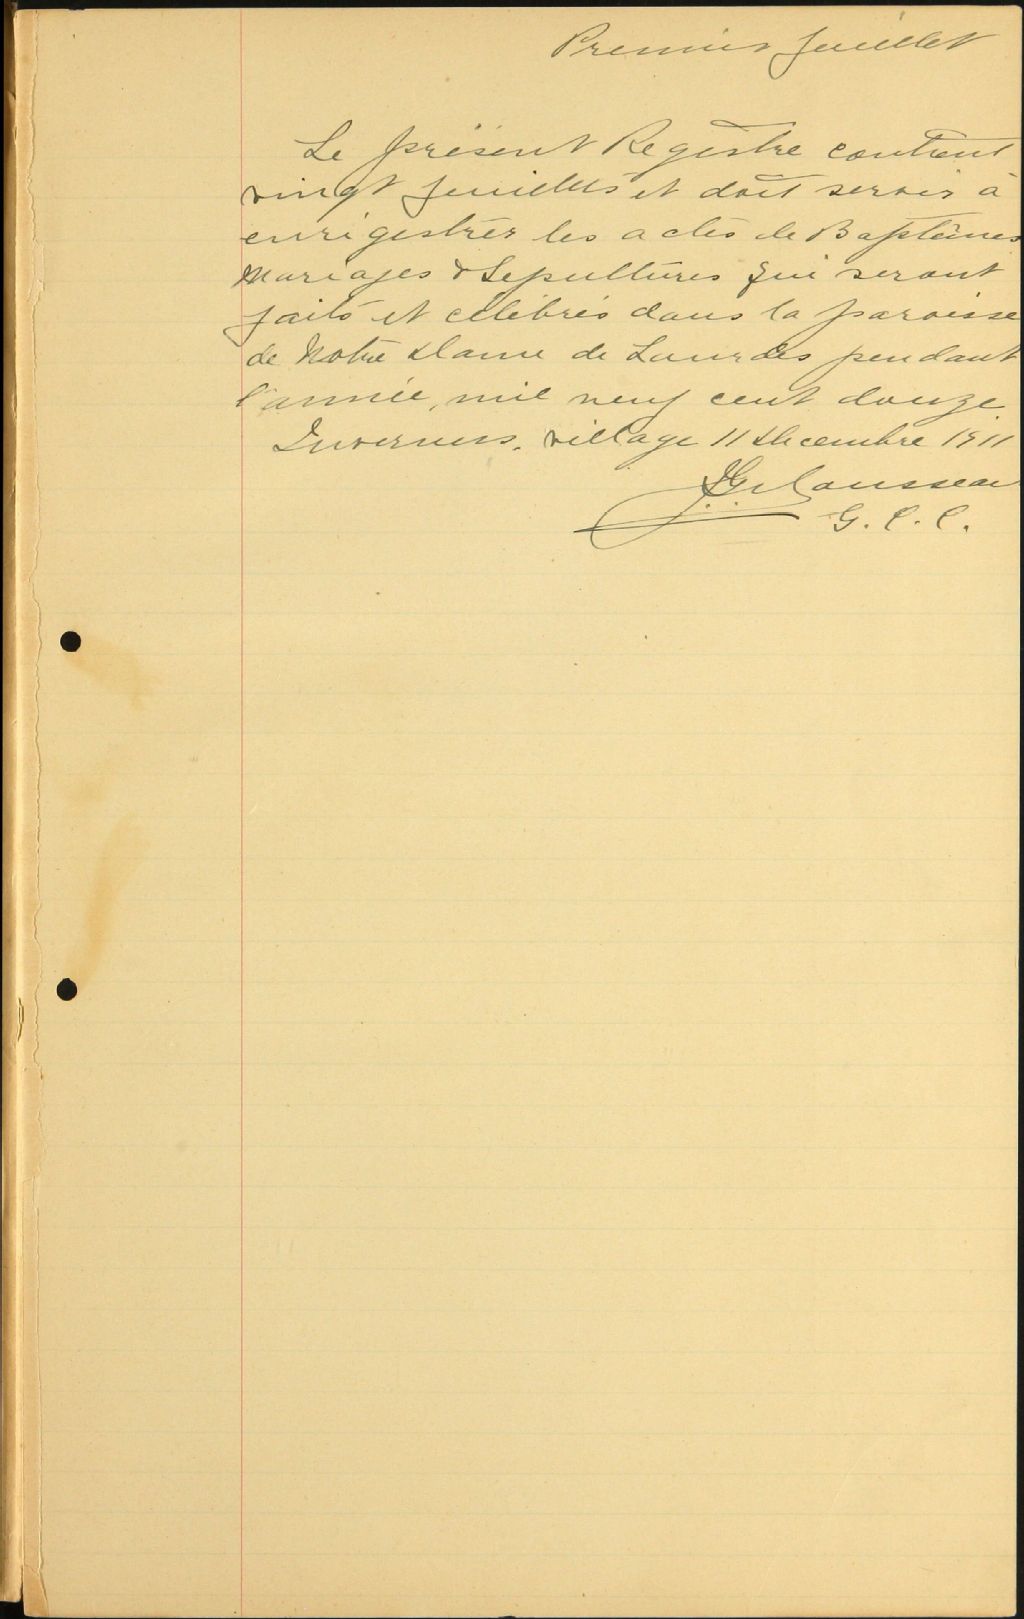 Premier feuillet
Le présent Registre contient
vingt feuillets et doit servir à
enrigestrer les actes de Baptêmes
Mariages & Sepultures qui seront
faits et célébrés dans la paroisse
de Notre Dame de Lourdes pendant
l'année, mil neuf cent douze
Inverness, village 11 Décembre 1911
G. C. C.